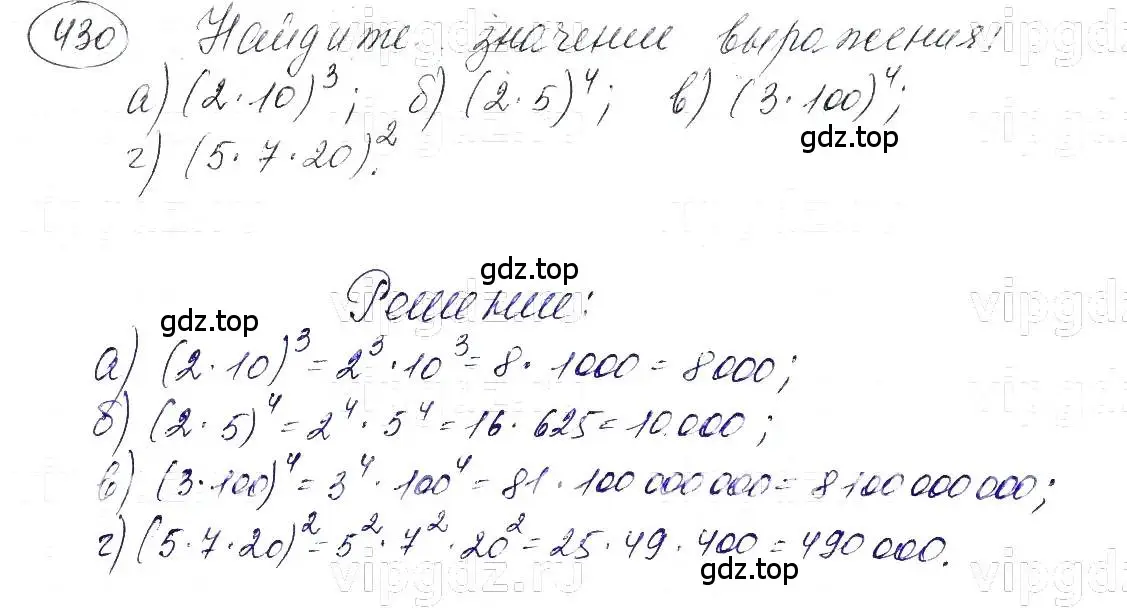 430 Найдите значении выражения:
а) (2·10)³; б) (2·5)⁴; в) (3·100)⁴;
gdz.top
г) (5·7·20)².
gdz.top
Решение:
gdz.top
а) (2·10)³ = 2³·10³ = 8·1000 = 8000;
б) (2·5)⁴ = 2⁴·5⁴ = 16·625 = 10.000;
в) (3·100)⁴ = 3⁴·100⁴ = 81·100 000 000 = 8 100 000 000;
г) (5·7·20)² = 5²·7²·20² = 25·49·400 = 490 000.
gdz.top
vipgdz.ru